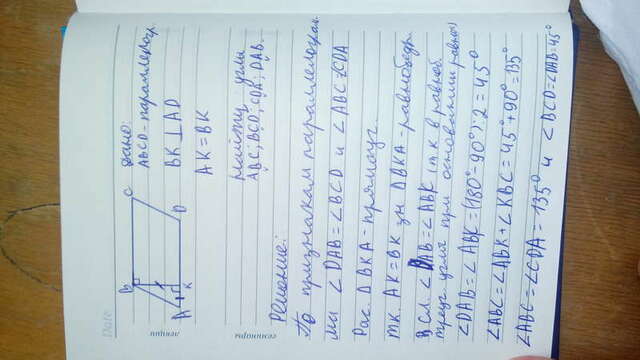 Date
лекции
семинары
B C
A K D
Дано:
ABCD-параллелогр.
BK ⊥ AD
AK = BK
Найти углы
ABC; BCD; CDA; DAB.
Решение:
По признакам параллелограм-
ма ∠DAB = ∠BCD и ∠ABC = ∠CDA
Рас. ΔBKA - прямоуг.
т.к. AK = BK зн. ΔBKA - равнобедр.
В сл. ∠DAB = ∠ABK (т к в равноб.
треуг. углы при основании равны)
∠DAB = ∠ABK = (180° - 90°) : 2 = 45°
∠ABC = ∠ABK + ∠KBC = 45° + 90° = 135°
∠ABC = ∠CDA = 135° и ∠BCD = ∠DAB = 45°